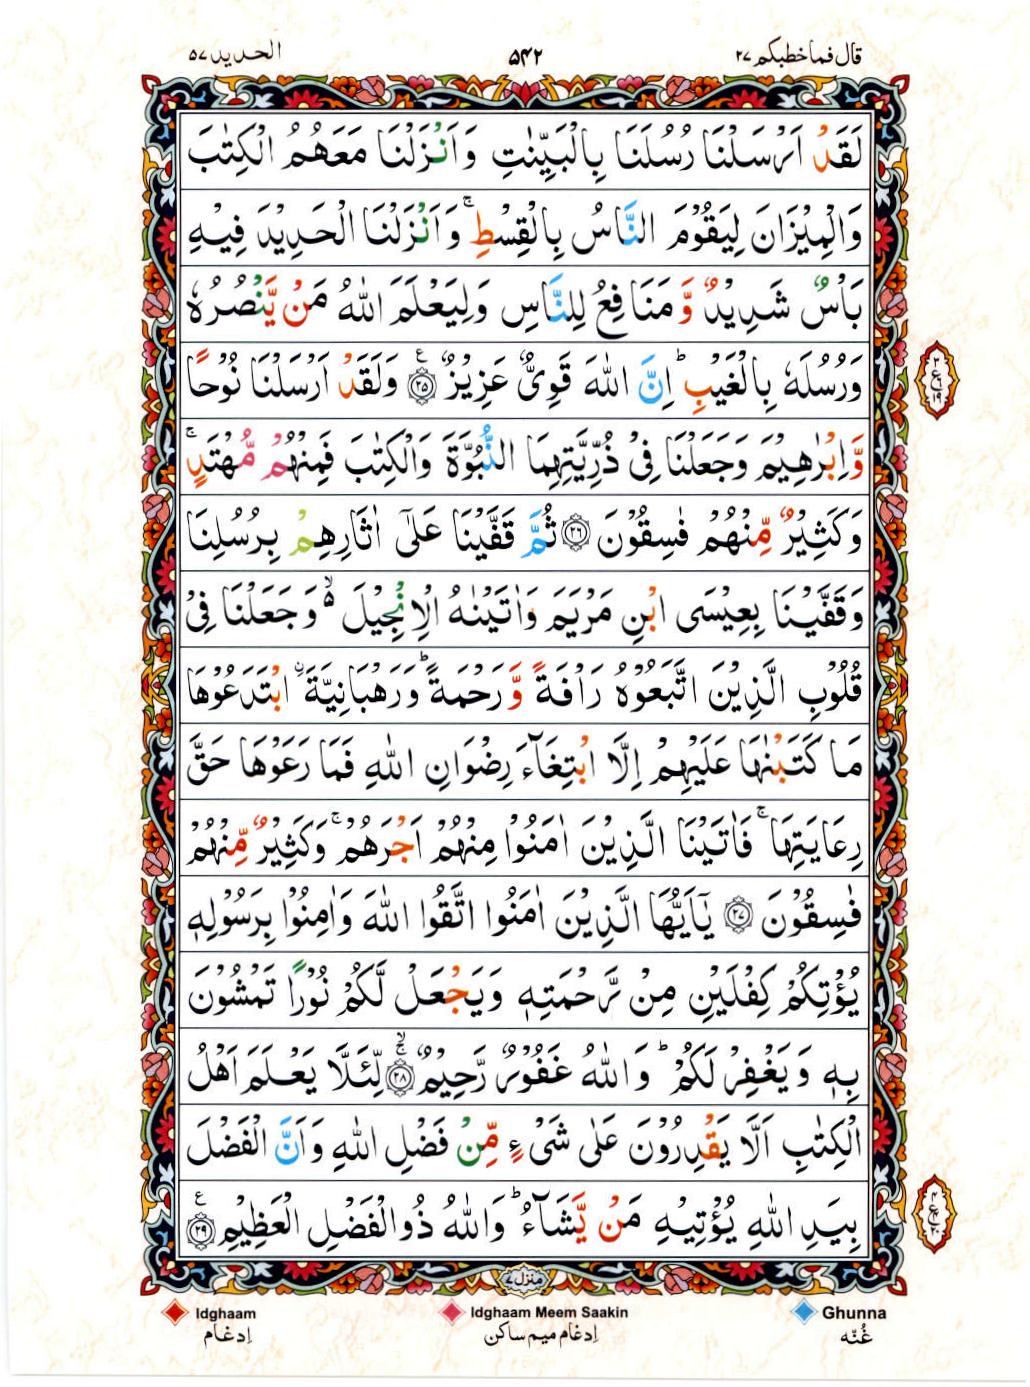 قال فما خطبكم ٢٧
۵۴۲
الحديد ۵۷
لَقَدْ اَرْسَلْنَا رُسُلَنَا بِالْبَيِّنٰتِ وَاَنْزَلْنَا مَعَهُمُ الْكِتٰبَ
وَالْمِيْزَانَ لِيَقُوْمَ النَّاسُ بِالْقِسْطِ ۚ وَاَنْزَلْنَا الْحَدِيْدَ فِيْهِ
بَاْسٌ شَدِيْدٌ وَّمَنَافِعُ لِلنَّاسِ وَلِيَعْلَمَ اللّٰهُ مَنْ يَّنْصُرُهٗ
وَرُسُلَهٗ بِالْغَيْبِ ؕ اِنَّ اللّٰهَ قَوِيٌّ عَزِيْزٌ ﴿٢۵﴾ ع وَلَقَدْ اَرْسَلْنَا نُوْحًا
وَّاِبْرٰهِيْمَ وَجَعَلْنَا فِيْ ذُرِّيَّتِهِمَا النُّبُوَّةَ وَالْكِتٰبَ فَمِنْهُمْ مُّهْتَدٍ ۚ
وَكَثِيْرٌ مِّنْهُمْ فٰسِقُوْنَ ﴿٢٦﴾ ثُمَّ قَفَّيْنَا عَلٰٓى اٰثَارِهِمْ بِرُسُلِنَا
وَقَفَّيْنَا بِعِيْسَى ابْنِ مَرْيَمَ وَاٰتَيْنٰهُ الْاِنْجِيْلَ ۙ۵ وَجَعَلْنَا فِيْ
قُلُوْبِ الَّذِيْنَ اتَّبَعُوْهُ رَاْفَةً وَّرَحْمَةً ؕ وَرَهْبَانِيَّةَ ۨ ابْتَدَعُوْهَا
مَا كَتَبْنٰهَا عَلَيْهِمْ اِلَّا ابْتِغَآءَ رِضْوَانِ اللّٰهِ فَمَا رَعَوْهَا حَقَّ
رِعَايَتِهَا ۚ فَاٰتَيْنَا الَّذِيْنَ اٰمَنُوْا مِنْهُمْ اَجْرَهُمْ ۚ وَكَثِيْرٌ مِّنْهُمْ
فٰسِقُوْنَ ﴿٢٧﴾ يٰٓاَيُّهَا الَّذِيْنَ اٰمَنُوا اتَّقُوا اللّٰهَ وَاٰمِنُوْا بِرَسُوْلِهٖ
يُؤْتِكُمْ كِفْلَيْنِ مِنْ رَّحْمَتِهٖ وَيَجْعَلْ لَّكُمْ نُوْرًا تَمْشُوْنَ
بِهٖ وَيَغْفِرْ لَكُمْ ؕ وَاللّٰهُ غَفُوْرٌ رَّحِيْمٌ ﴿٢٨﴾ لِّئَلَّا يَعْلَمَ اَهْلُ
الْكِتٰبِ اَلَّا يَقْدِرُوْنَ عَلٰى شَيْءٍ مِّنْ فَضْلِ اللّٰهِ وَاَنَّ الْفَضْلَ
بِيَدِ اللّٰهِ يُؤْتِيْهِ مَنْ يَّشَآءُ ؕ وَاللّٰهُ ذُو الْفَضْلِ الْعَظِيْمِ ﴿٢٩﴾ ع
منزل ٧
Idghaam
Idghaam Meem Saakin
Ghunna
اِدغام
اِدغام ميم ساكن
غُنّه